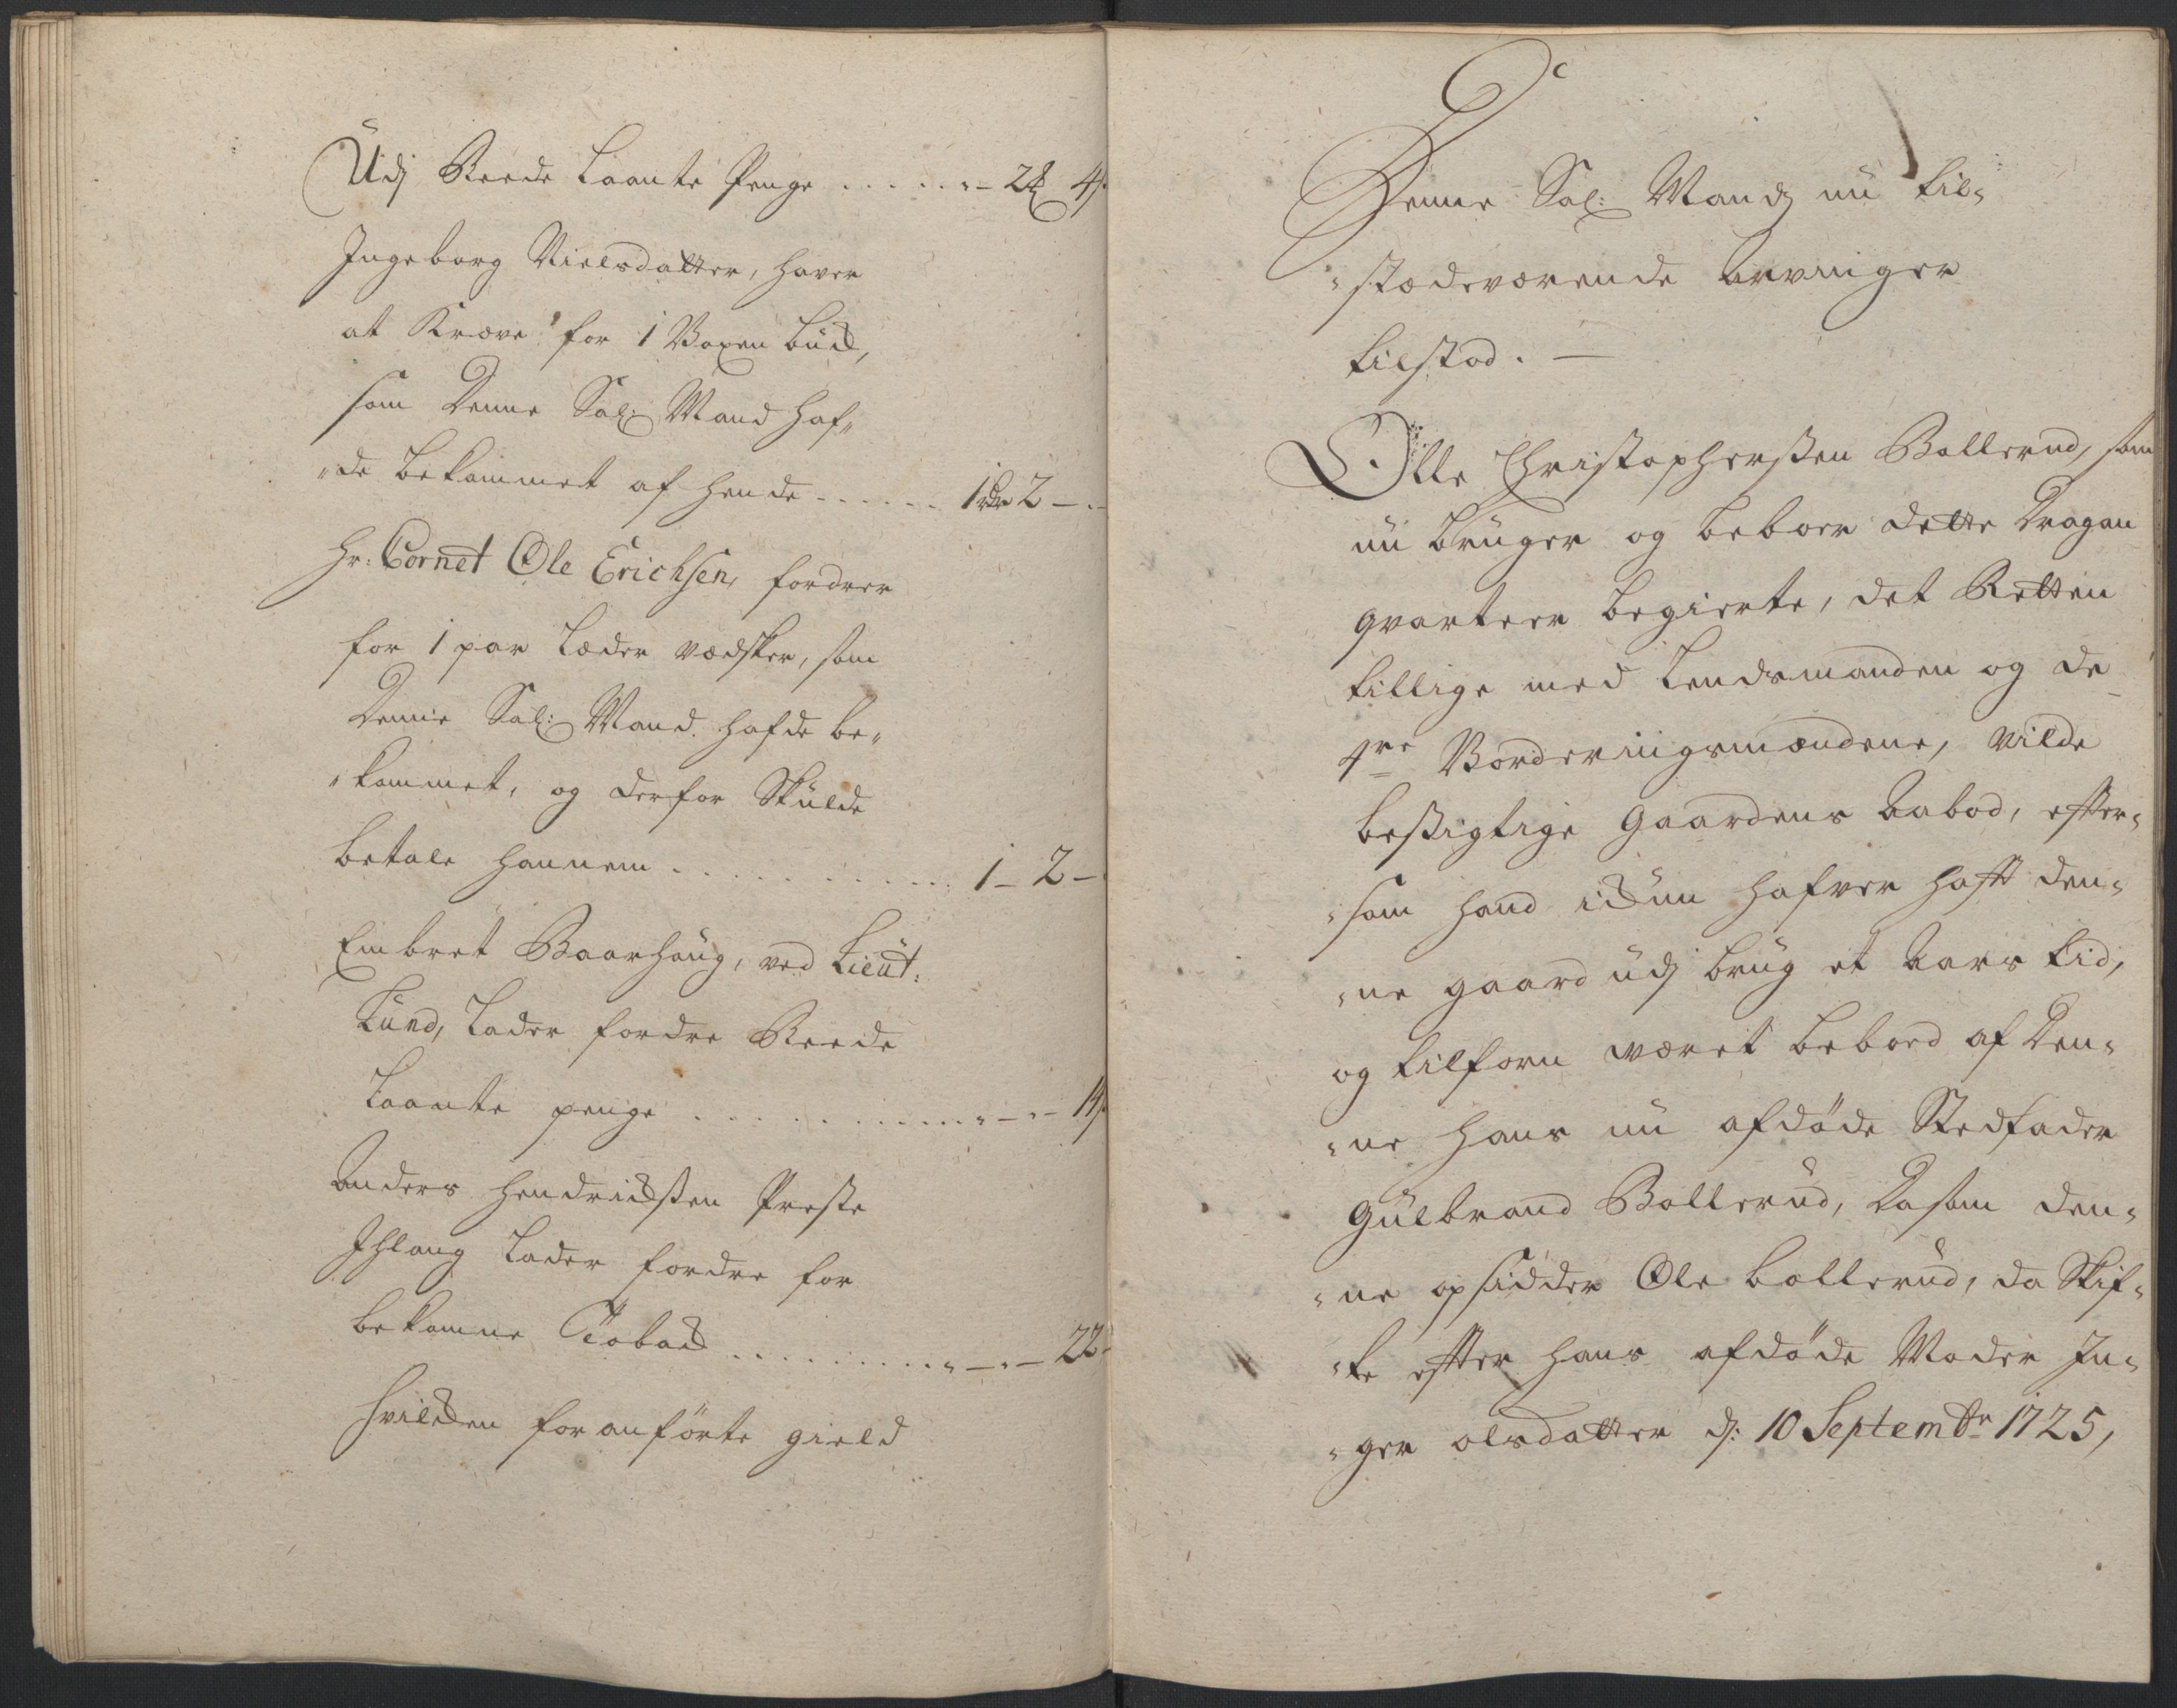 Udj Reede Laante Penge ..... - 2 4
Ingeborg Nielsdatter, haver
at Kræve for 1 Voxen buck,
som Denne Sal: Mand haf„
„de bekommet af hende ...... 1 rdr 2 - -
Hr: Cornet Ole Erichsen, fordrer
for 1 par Læder vædsker, som
Denne Sal: Mand hafde be„
„kommet, og derfor Skulde
betale hannem ............ 1 - 2 -
Embret Baarhaug, ved Lieut:
Lund, Lader fordre Reede
Laante penge ............ - - -
Anders Hendrichsen Præste
Lader fordre for
bekomne Toback .......... - - 22
hvilcken foranførte gield
Denne Sal: Mandz nu til„
„stædeværende Arvinger
tilstod. —
Olle Christophersen Bollerud, som
nu bruger og beboer dette Dragon
qvarteer begierte, det Retten
tillige med Lensmanden og de
4re Vorderingsmændene, vilde
besigtige Gaardens Aabod, efter„
„som hand ickun hafver haft den„
„ne gaard udj brug et Aars tid,
og tilforn været beboed af Den„
„ne hans nu afdøde Stedfader
Gulbrand Bollerud, Dasom den„
„ne opsidder Ole Bollerud, da Skif„
„te efter hans afdøde Moder In„
„ger olsdatter d: 10 Septembr 1725,